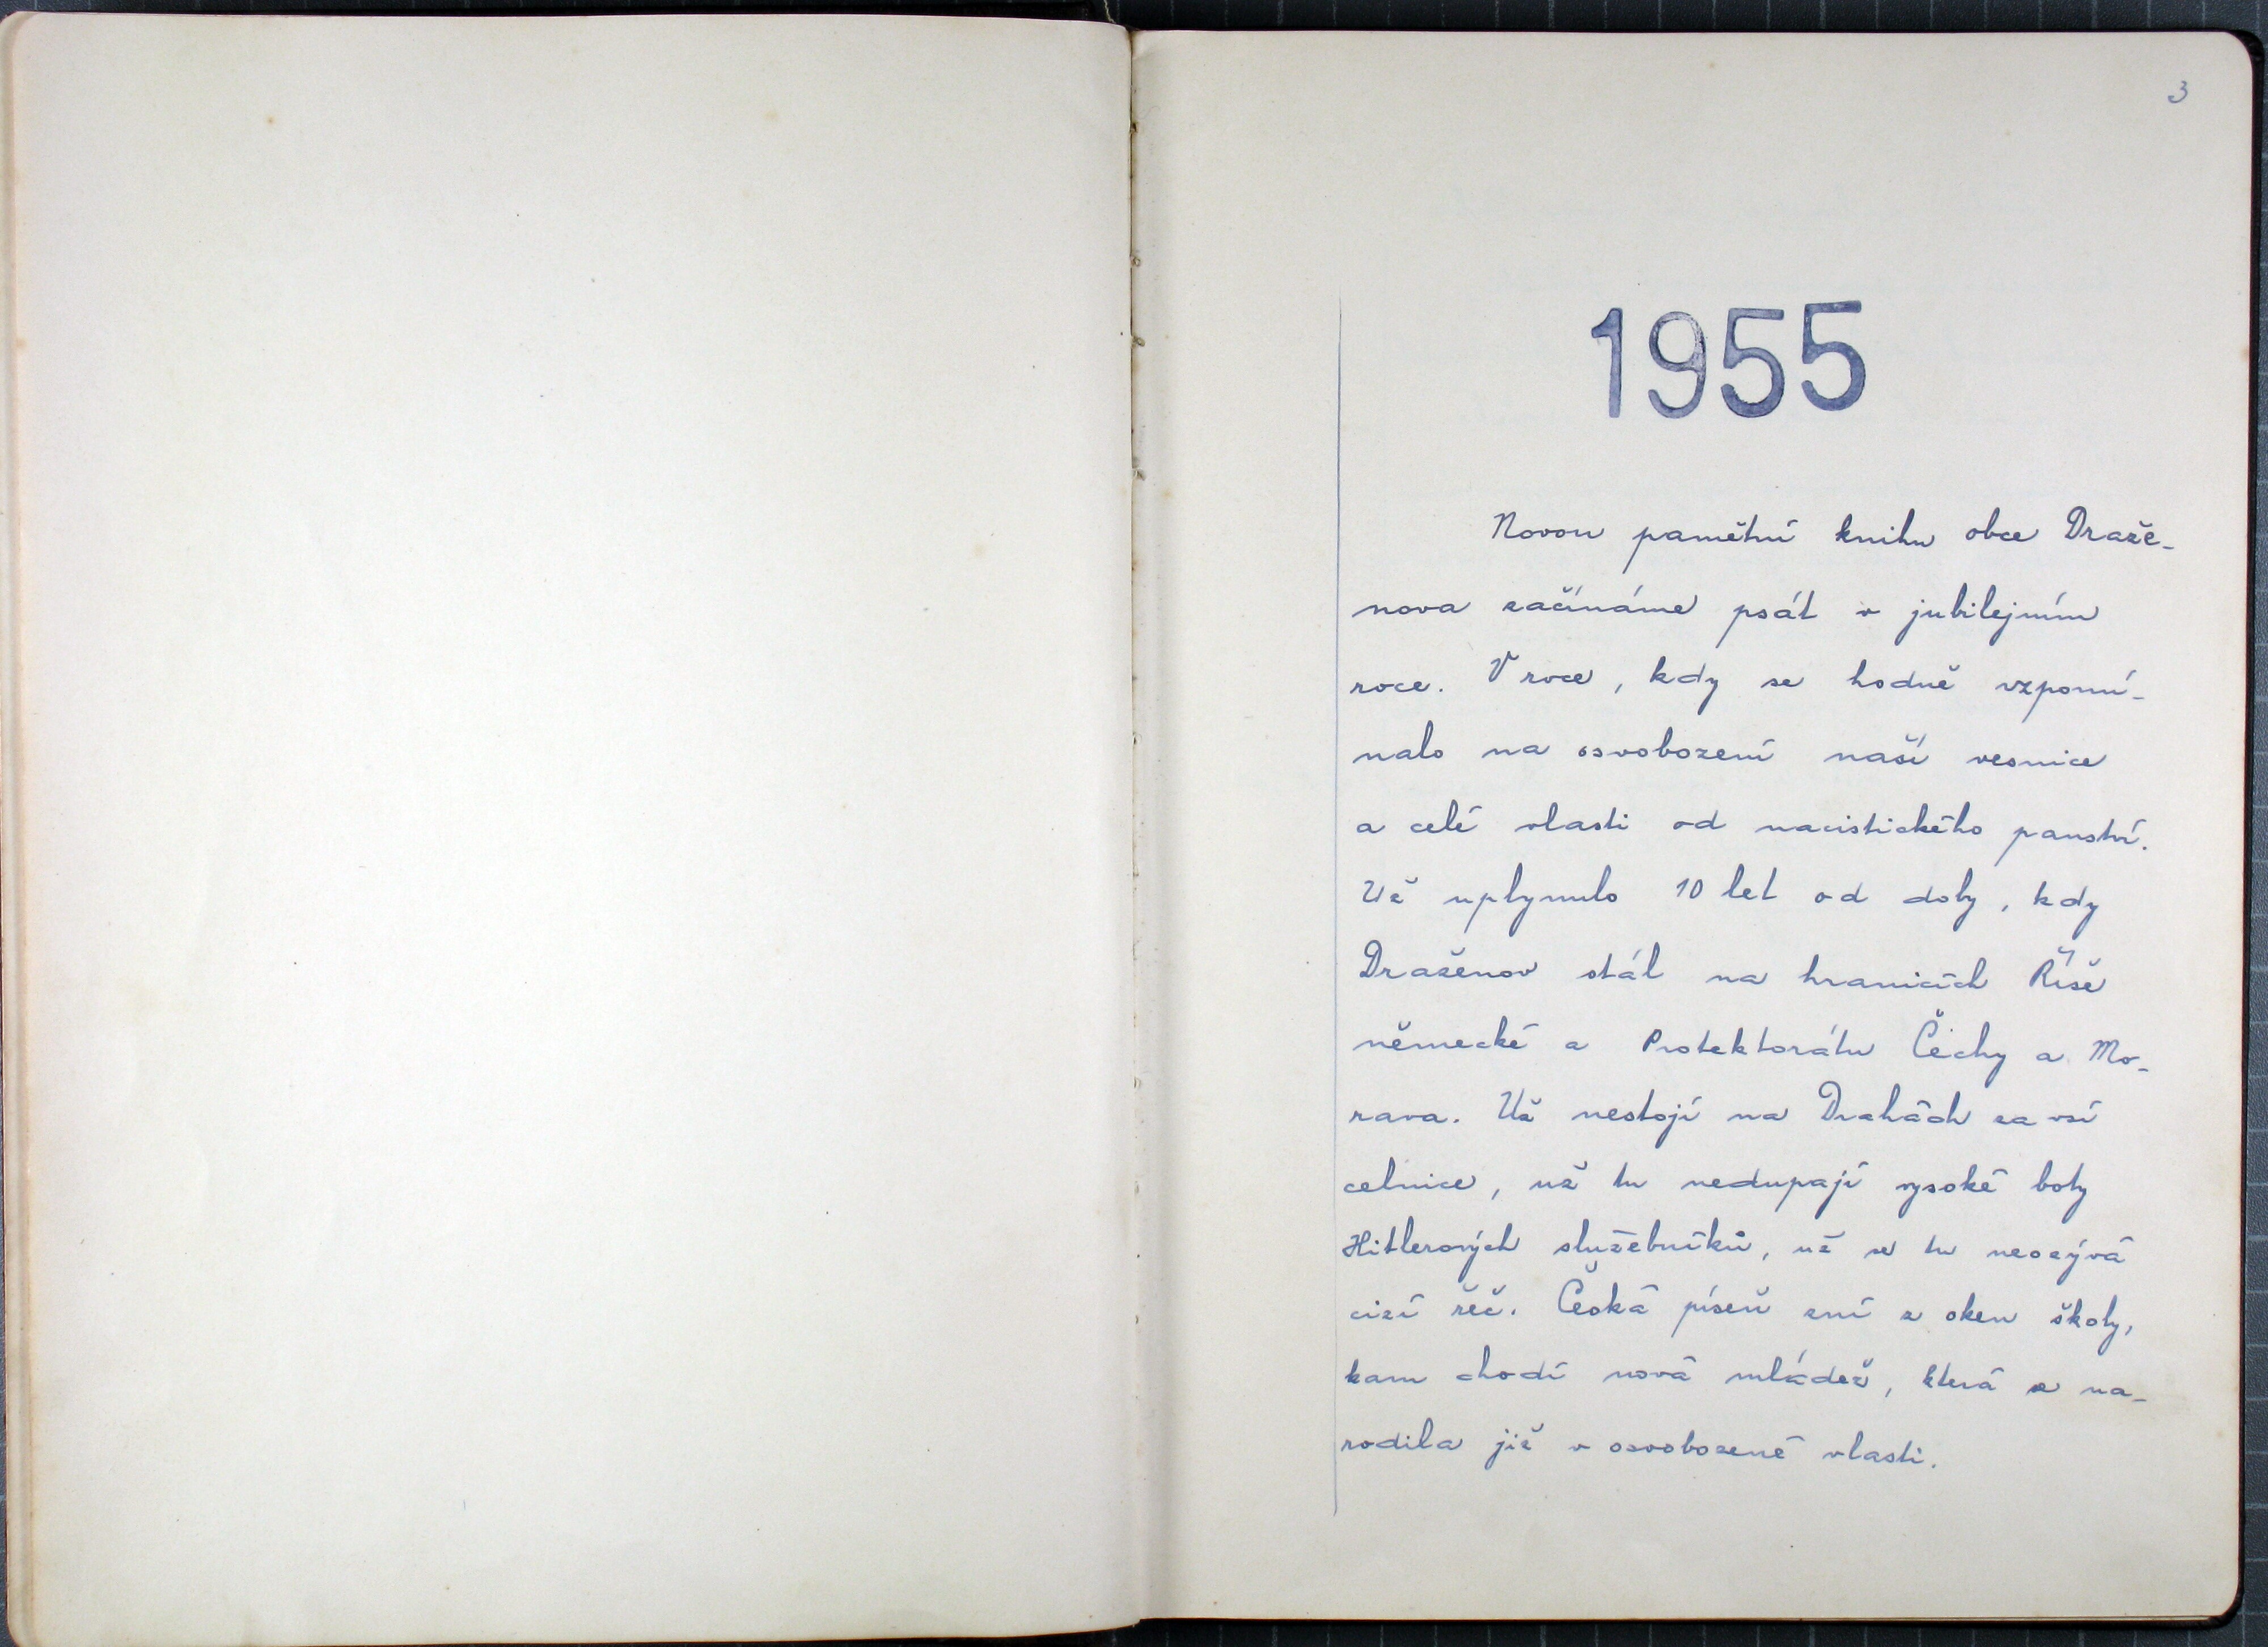 3
1955
Novou pamětní knihu obce Draže-
nova začínáme psát v jubilejním
roce. V roce, kdy se hodně vzpomí-
nalo na osvobození naší vesnice
a celé vlasti od nacistického panství.
Už uplynulo 10 let od doby, kdy
Draženov stál na hranicích Říše
německé a Protektorátu Čechy a Mo-
rava. Už nestojí na Drahách za vsí
celnice, už tu nedupají vysoké boty
Hitlerových služebníků, už se tu neozývá
cizí řeč. Česká píseň zní z oken školy,
kam chodí nová mládež, která se na-
rodila již v osvobozené vlasti.